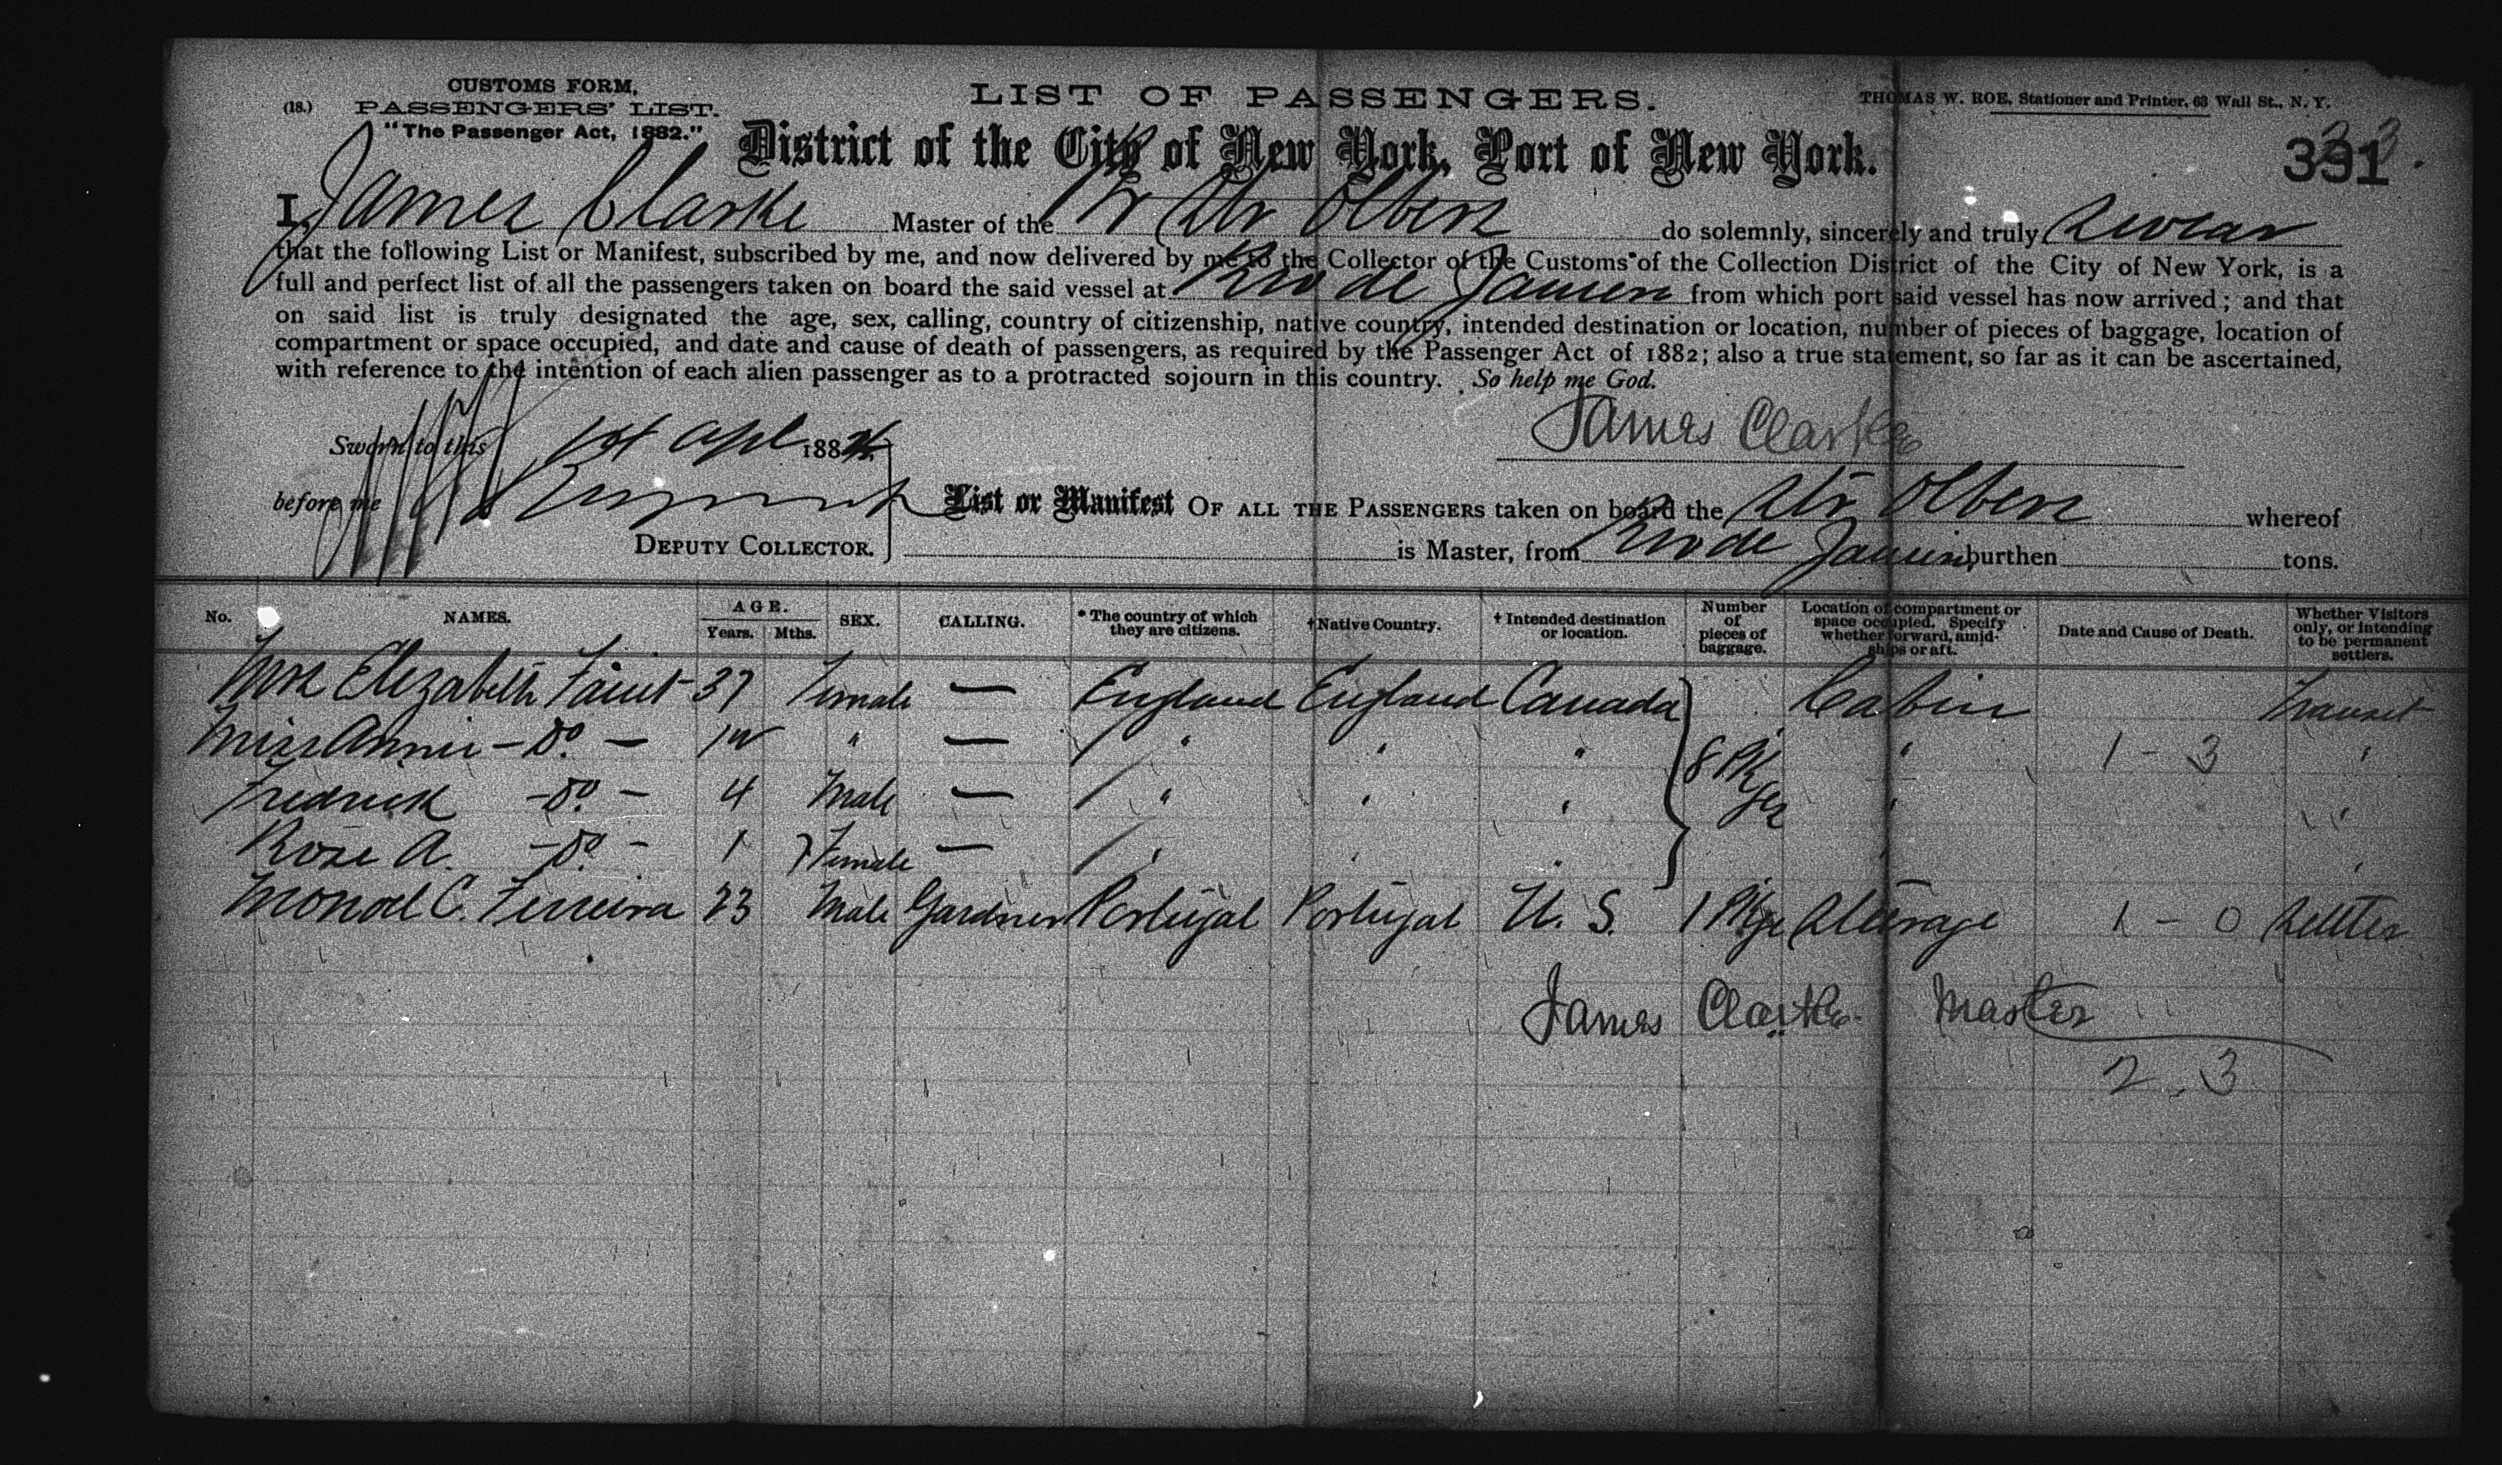 CUSTOMS FORM,
(18.) PASSENGERS' LIST.
"The Passenger Act, 1882."
LIST OF PASSENGERS.
THOMAS W. ROE, Stationer and Printer, 63 Wall St., N. Y.
District of the City of New York, Port of New York.
391
I, James Clarke Master of the Br Str Olbers do solemnly, sincerely and truly swear
that the following List or Manifest, subscribed by me, and now delivered by me to the Collector of the Customs of the Collection District of the City of New York, is a
full and perfect list of all the passengers taken on board the said vessel at Rio de Janeiro from which port said vessel has now arrived; and that
on said list is truly designated the age, sex, calling, country of citizenship, native country, intended destination or location, number of pieces of baggage, location of
compartment or space occupied, and date and cause of death of passengers, as required by the Passenger Act of 1882; also a true statement, so far as it can be ascertained,
with reference to the intention of each alien passenger as to a protracted sojourn in this country. So help me God.
James Clarke
Sworn to this 1st Apl 1884
before me
DEPUTY COLLECTOR.
List or Manifest OF ALL THE PASSENGERS taken on board the Str Olbers whereof
is Master, from Rio de Janeiro, burthen tons.
No. NAMES. AGE. Years. Mths. SEX. CALLING. * The country of which they are citizens. † Native Country. † Intended destination or location. Number of pieces of baggage. Location of compartment or space occupied. Specify whether forward, amidships or aft. Date and Cause of Death. Whether Visitors only, or intending to be permanent settlers.
Mrs Elizabeth Faint 37 Female — England England Canada Cabin Transit
Miss Annie - Do - " — " " " 8 Pkges " 1 - 3 "
Fredrick - Do - 4 Male — " " " " "
Rose A. - Do - 1 Female — " " " " "
Monoel C. Ferreira 23 Male Gardner Portugal Portugal U. S. 1 Pkge Steerage 1 - 0 Settler
James Clarke Master
2 . 3